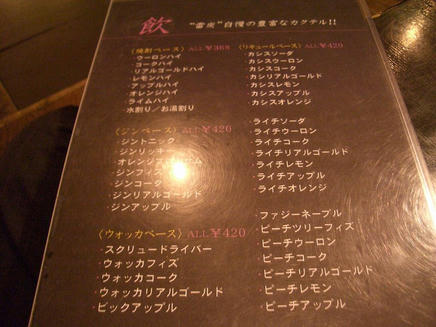 飲
"蕾炎"自慢の豊富なカクテル!!
〈焼酎ベース〉ALL¥368
・ウーロンハイ
・コークハイ
・リアルゴールドハイ
・レモンハイ
・アップルハイ
・オレンジハイ
・ライムハイ
・水割り/お湯割り
〈ジンベース〉ALL¥420
・ジントニック
・ジンリッキー
・オレンジ
・ジンフィズ
・ジンコーク
・ジンリアルゴールド
・ジンアップル
〈ウォッカベース〉ALL¥420
・スクリュードライバー
・ウォッカフィズ
・ウォッカコーク
・ウォッカリアルゴールド
・ビックアップル
〈リキュールベース〉ALL¥420
・カシスソーダ
・カシスウーロン
・カシスコーク
・カシスリアルゴールド
・カシスレモン
・カシスアップル
・カシスオレンジ
・ライチソーダ
・ライチウーロン
・ライチコーク
・ライチリアルゴールド
・ライチレモン
・ライチアップル
・ライチオレンジ
・ファジーネーブル
・ピーチツリーフィズ
・ピーチウーロン
・ピーチコーク
・ピーチリアルゴールド
・ピーチレモン
・ピーチアップル